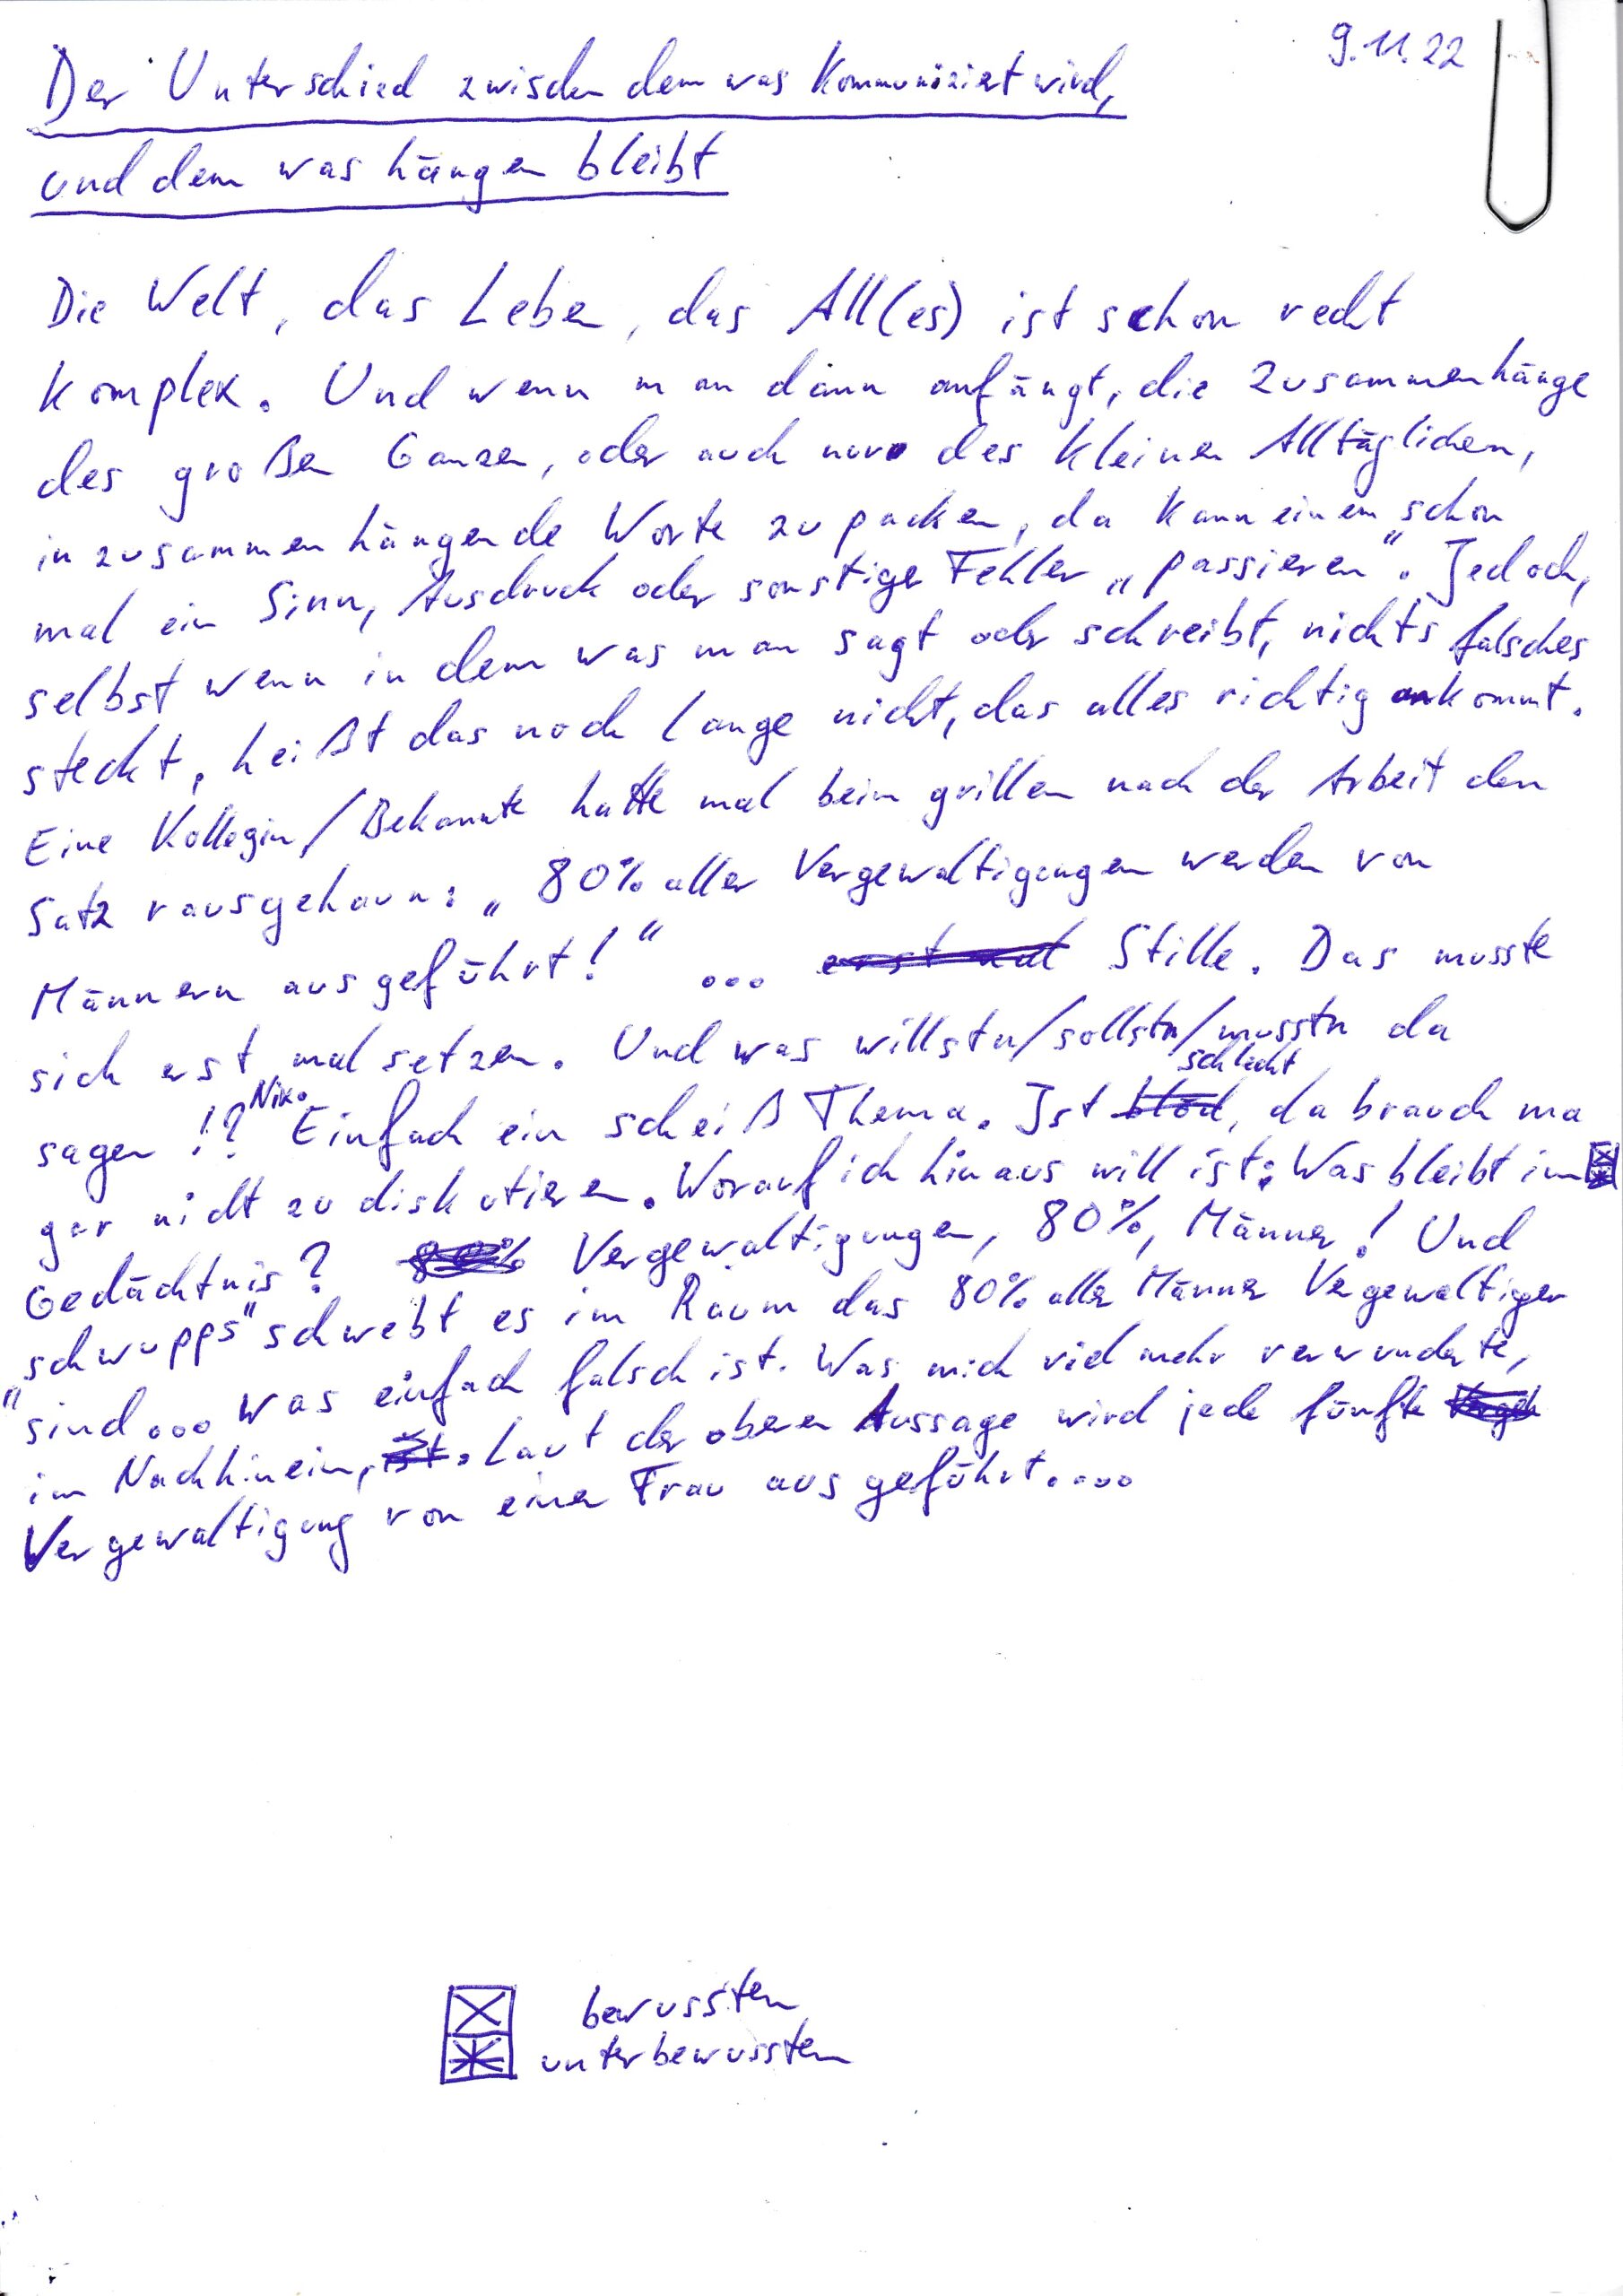 9.11.22
Der Unterschied zwischen dem was kommuniziert wird,
und dem was hängen bleibt
Die Welt, das Leben, das All(es) ist schon recht
komplex. Und wenn man dann anfängt, die Zusammenhänge
des großen Ganzen, oder auch nur des kleinen Alltäglichen,
in zusammenhängende Worte zu packen, da kann einem schon
mal ein Sinn, Ausdruck oder sonstiger Fehler „passieren“. Jedoch,
selbst wenn in dem was man sagt oder schreibt, nichts falsches
steckt, heißt das noch lange nicht, das alles richtig ankommt.
Eine Kollegin/Bekannte hatte mal beim grillen nach der Arbeit den
Satz rausgehaun: „80% aller Vergewaltigungen werden von
Männern ausgeführt!“ ... erst mal Stille. Das musste
sich erst mal setzen. Und was willstn/sollstn/musstn da
schlecht
sagen!? Nix. Einfach ein scheiß Thema. Ist blöd, da brauch ma
gar nicht zu diskutieren. Worauf ich hinaus will ist: Was bleibt im
Gedächtnis? 80% Vergewaltigungen, 80%, Männer! Und
„schwupps“ schwebt es im Raum das 80% aller Männer Vergewaltiger
sind... Was einfach falsch ist. Was mich viel mehr verwunderte,
im Nachhinein, ist. Laut der oberen Aussage wird jede fünfte
Vergewaltigung von einer Frau ausgeführt....
bewussten
unterbewussten